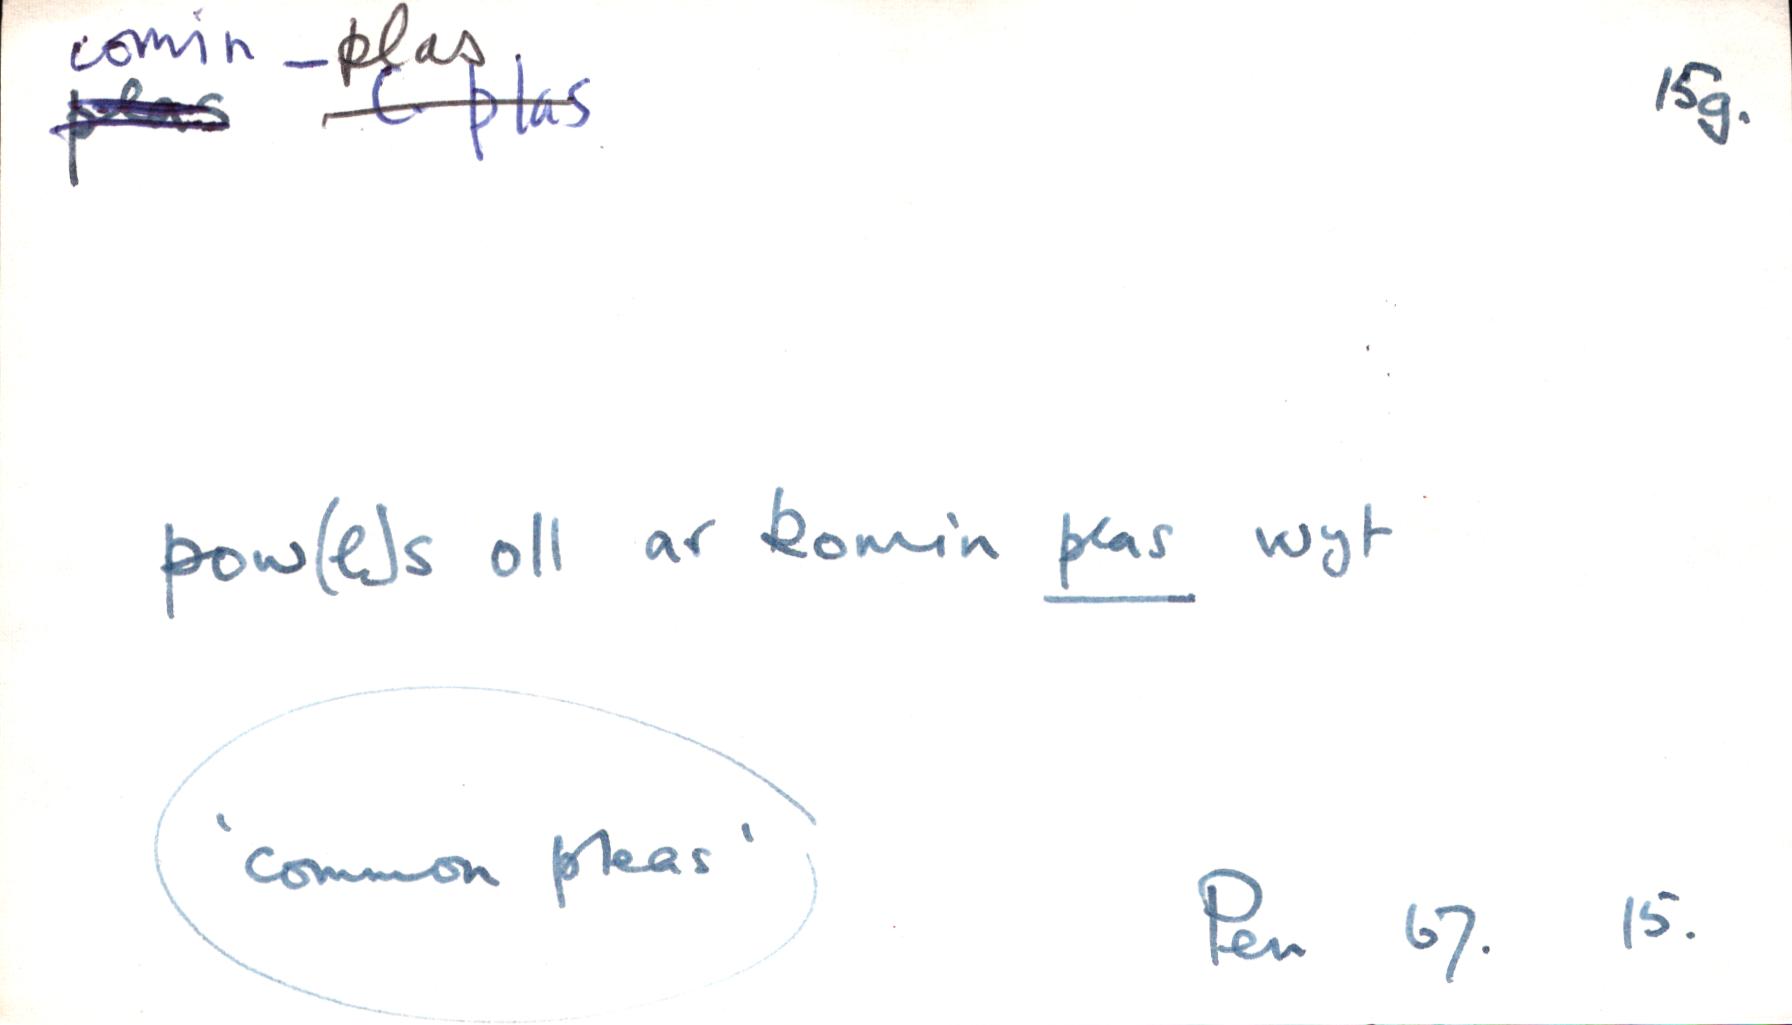 comin - plas
plas C plas
15g.
pow(e)s oll ar komin plas wyt
'common pleas'
Pen 67. 15.